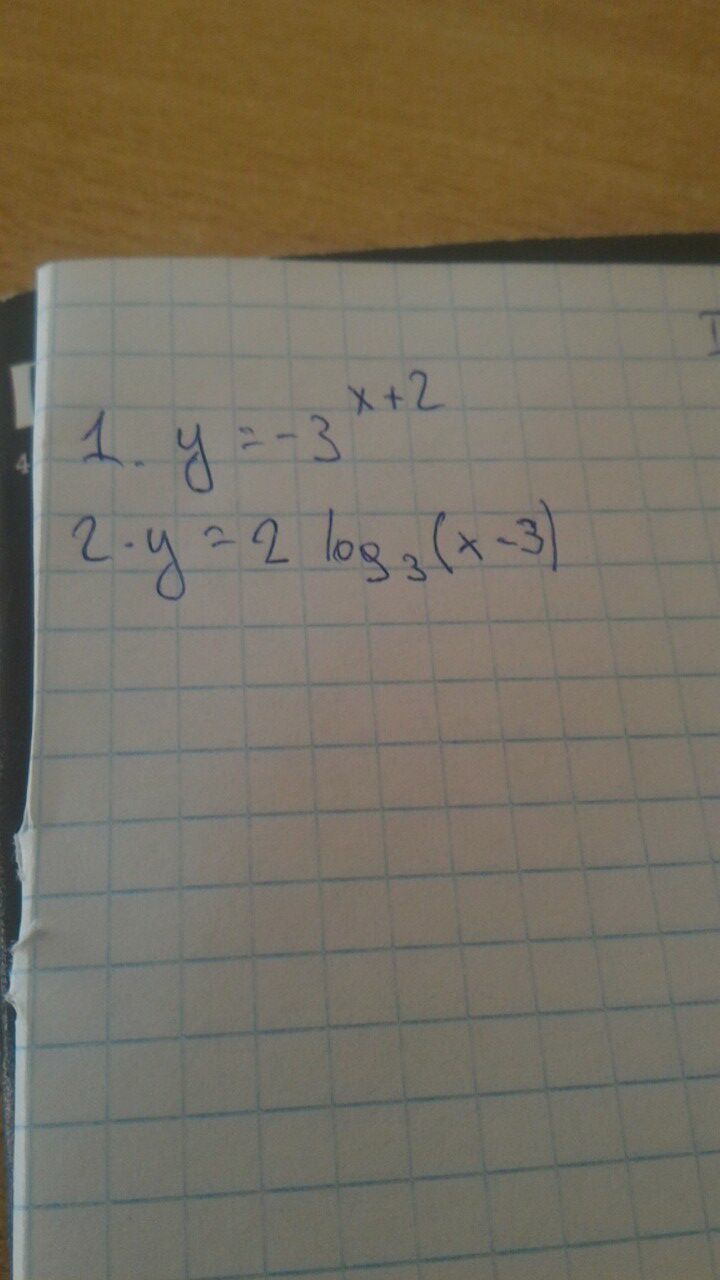 1. y = -3^{x+2}
2. y = 2 log_3 (x-3)
4